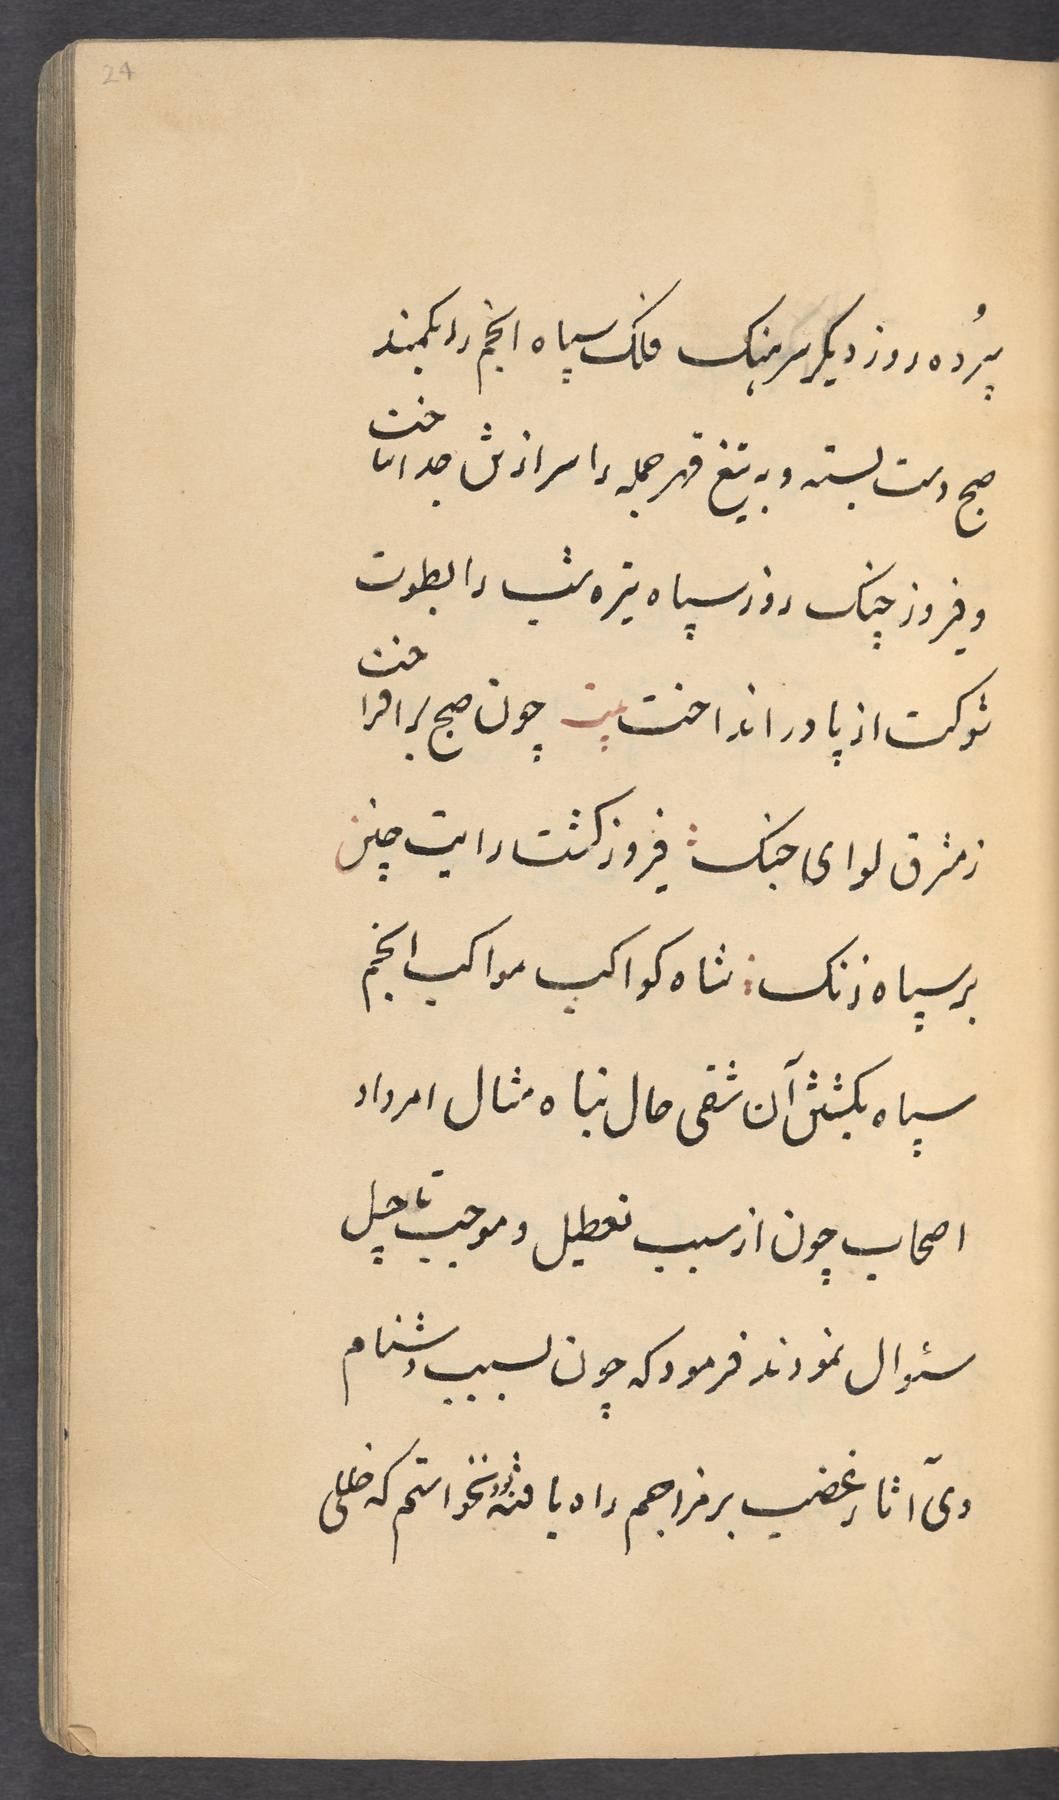 24
پرُده روز دیکر سرهنک فلک سپاه انجم را بکمند
صبح دست بسته و به تیغ قهر جمله را سر از تن جدا ساخت
و فیروز چنک روز سپاه تیره شب را بطوت
شوکت از پا در انداخت بیت چون صبح بر افراخت
ز مشرق لوای جنک فیروز کشت رایت چین
بر سپاه زنک شاه کواکب مواکب انجم
سپاه بکشتن آن شقی حال تباه مثال امر داد
اصحاب چون از سبب تعطیل و موجب تاجیل
سئوال نمودند فرمود که چون بسبب دشنام
وی آثار غضب بر مزاجم راه یافته بود نخواستم که ظلمی